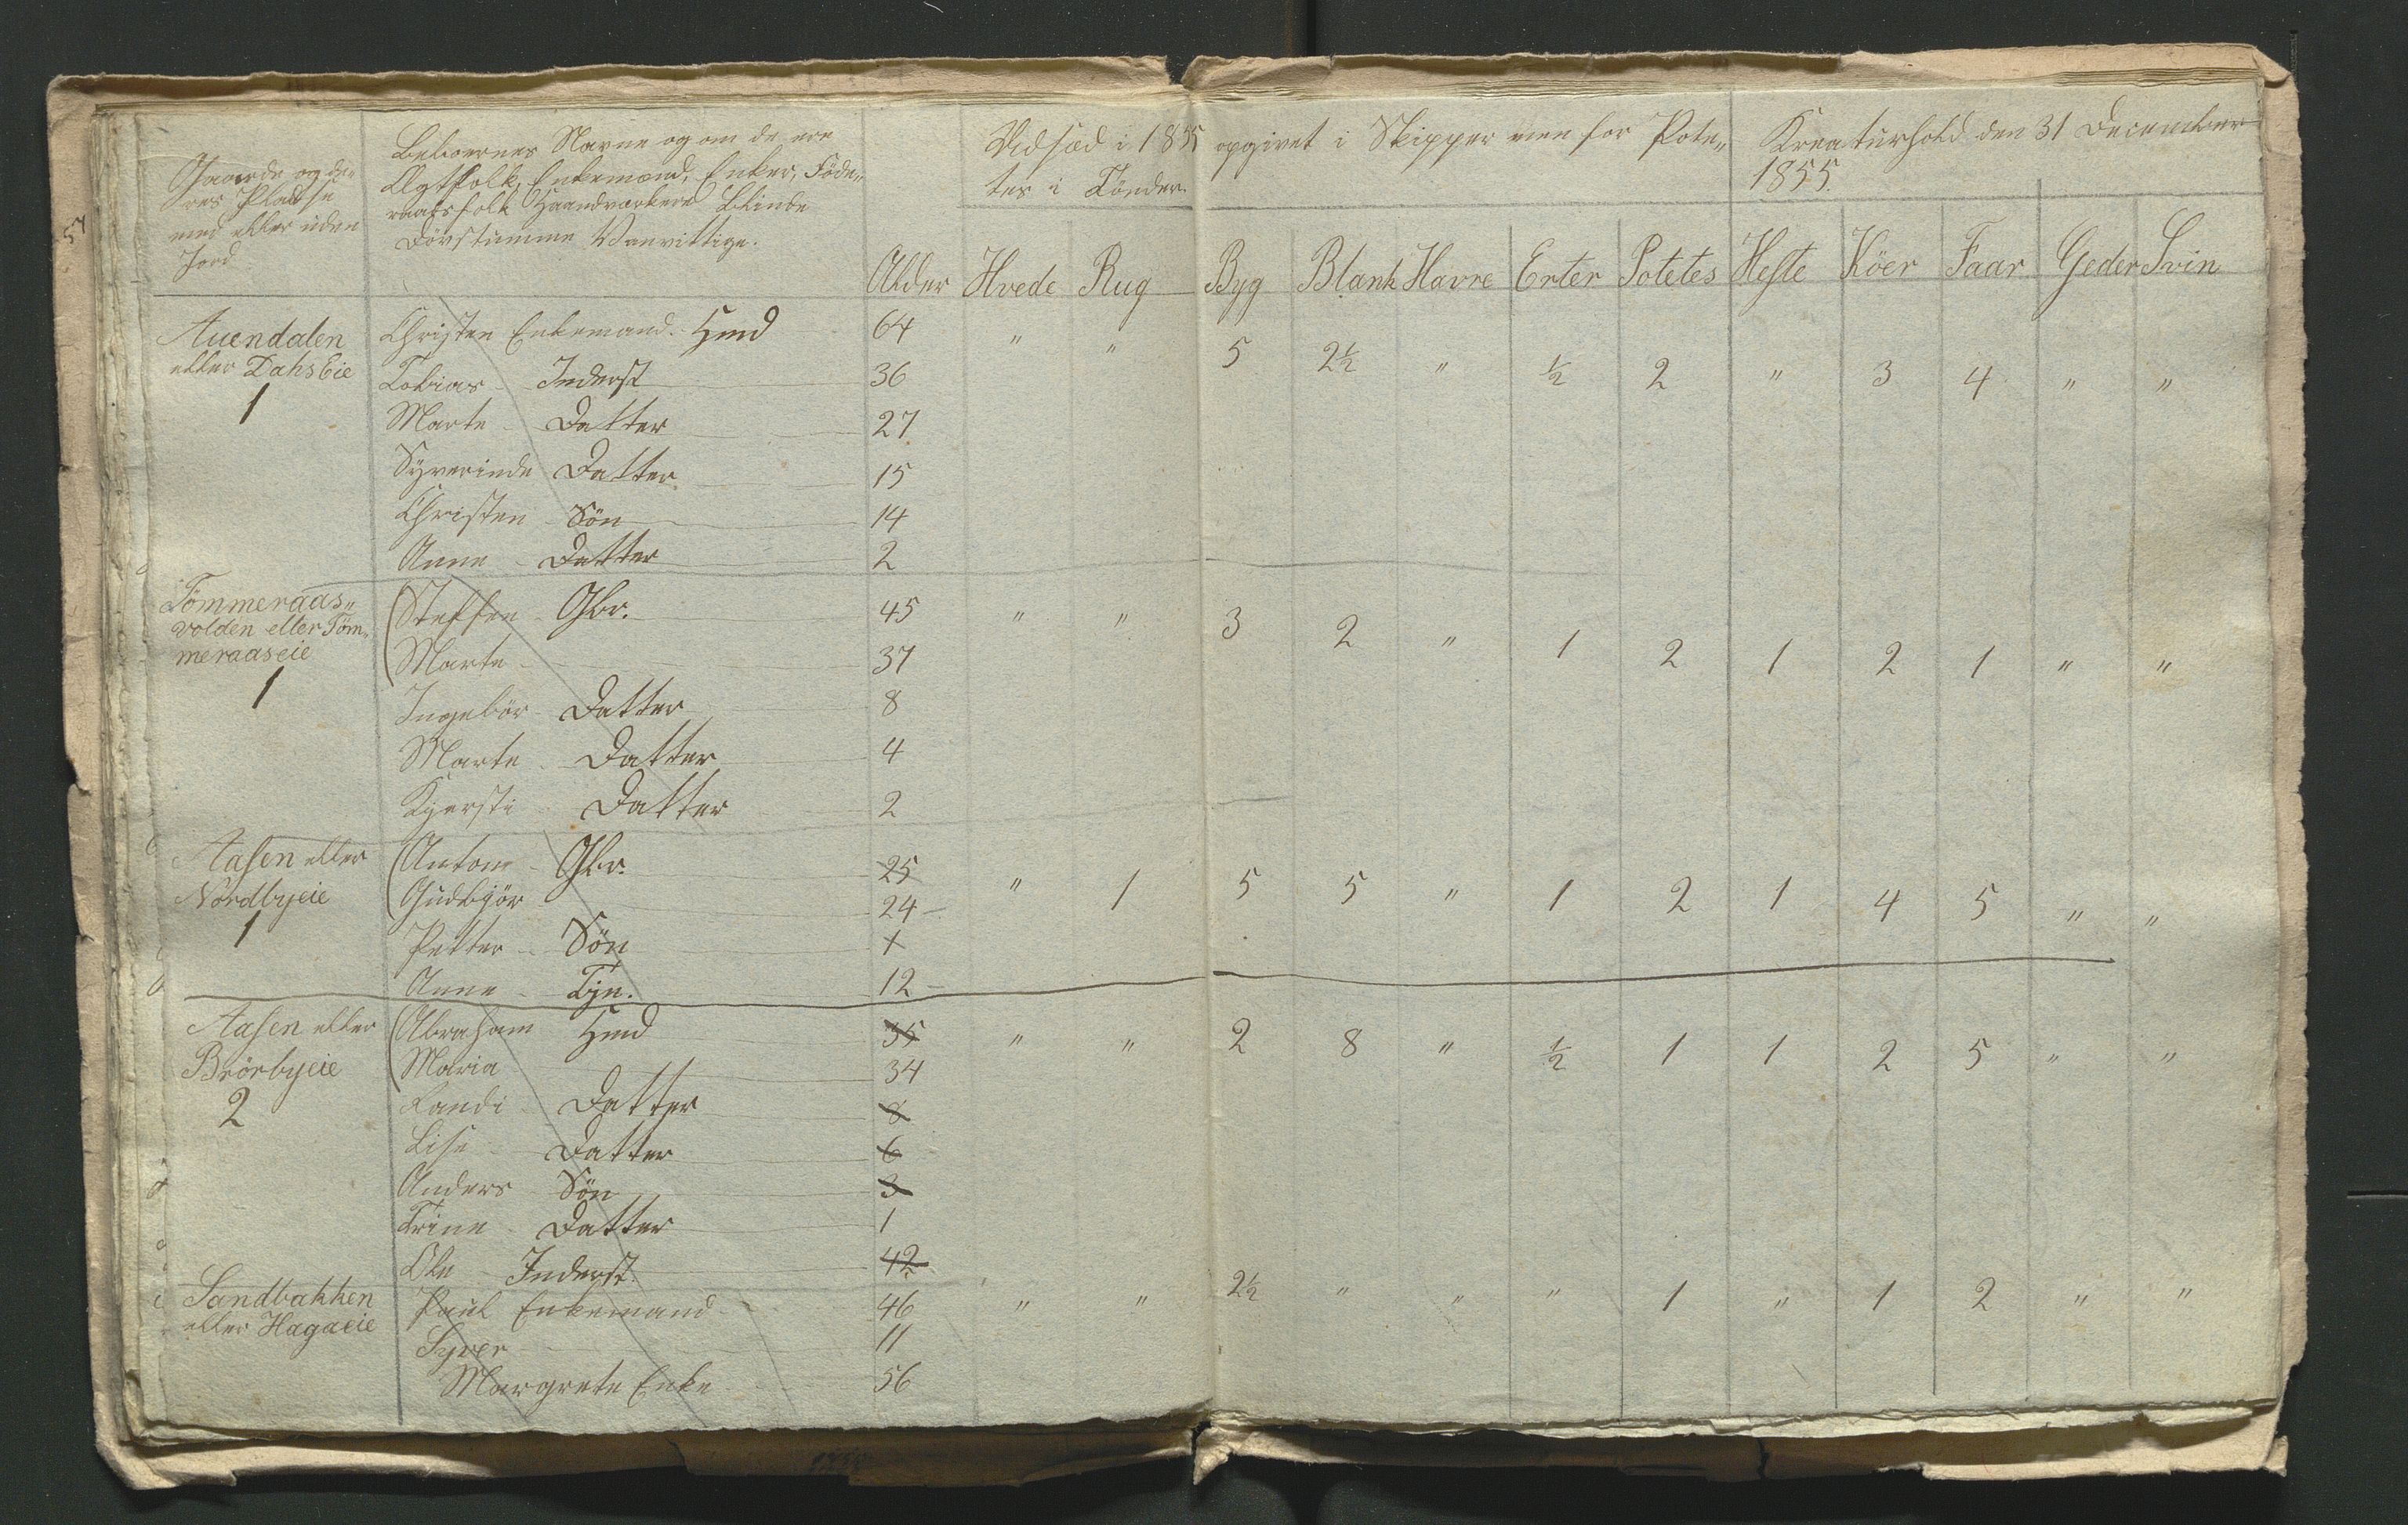 57
Gaarde og de-
res Pladse
med eller uden
Jord
Beboernes Navne og om de ere
Ægtfolk, Enkemænd, Enker, Föde-
raadsfolk Haandværkere Blinde
Dövstumme Vanvittige.
Alder
Udsæd i 1855 opgivet i Skipper men for Pote„
tes i Tönder.
Kreaturhold den 31 December
1855.
Hvede Rug Byg Blank Havre Erter Potetes Heste Köer Faar Geder Svin
Auendalen Christen Enkemand. Hmd 64 " " 5 2½ " ½ 2 " 3 4 " "
eller Dahs Eie Tobias Inderst 36
1 Marte Datter 27
Syverinde Datter 15
Christen Sön 14
Anne Datter 2
Tömmeraas„ Steffen Gbr. 45 " " 3 2 " 1 2 1 2 1 " "
volden eller Töm„
meraaseie Marte 37
1 Ingebör Datter 8
Marte Datter 4
Kjersti Datter 2
Aasen eller Anton Gbr. 25 " 1 5 5 " 1 2 1 4 5 " "
Nordbyeie Gudbjör 24
1 Petter Sön 1
Anne Tjn. 12
Aasen eller Abraham Hmd 35 " " 2 8 " ½ 1 1 2 5 " "
Brörbyeie Maria 34
2 Randi Datter 8
Lise Datter 6
Anders Sön 3
Trine Datter 1
Ole Inderst 42
Sandbakken Paul Enkemand 46 " " 2½ " " " 1 " 1 2 " "
eller Hagaeie Syver 11
Margrete Enke 56